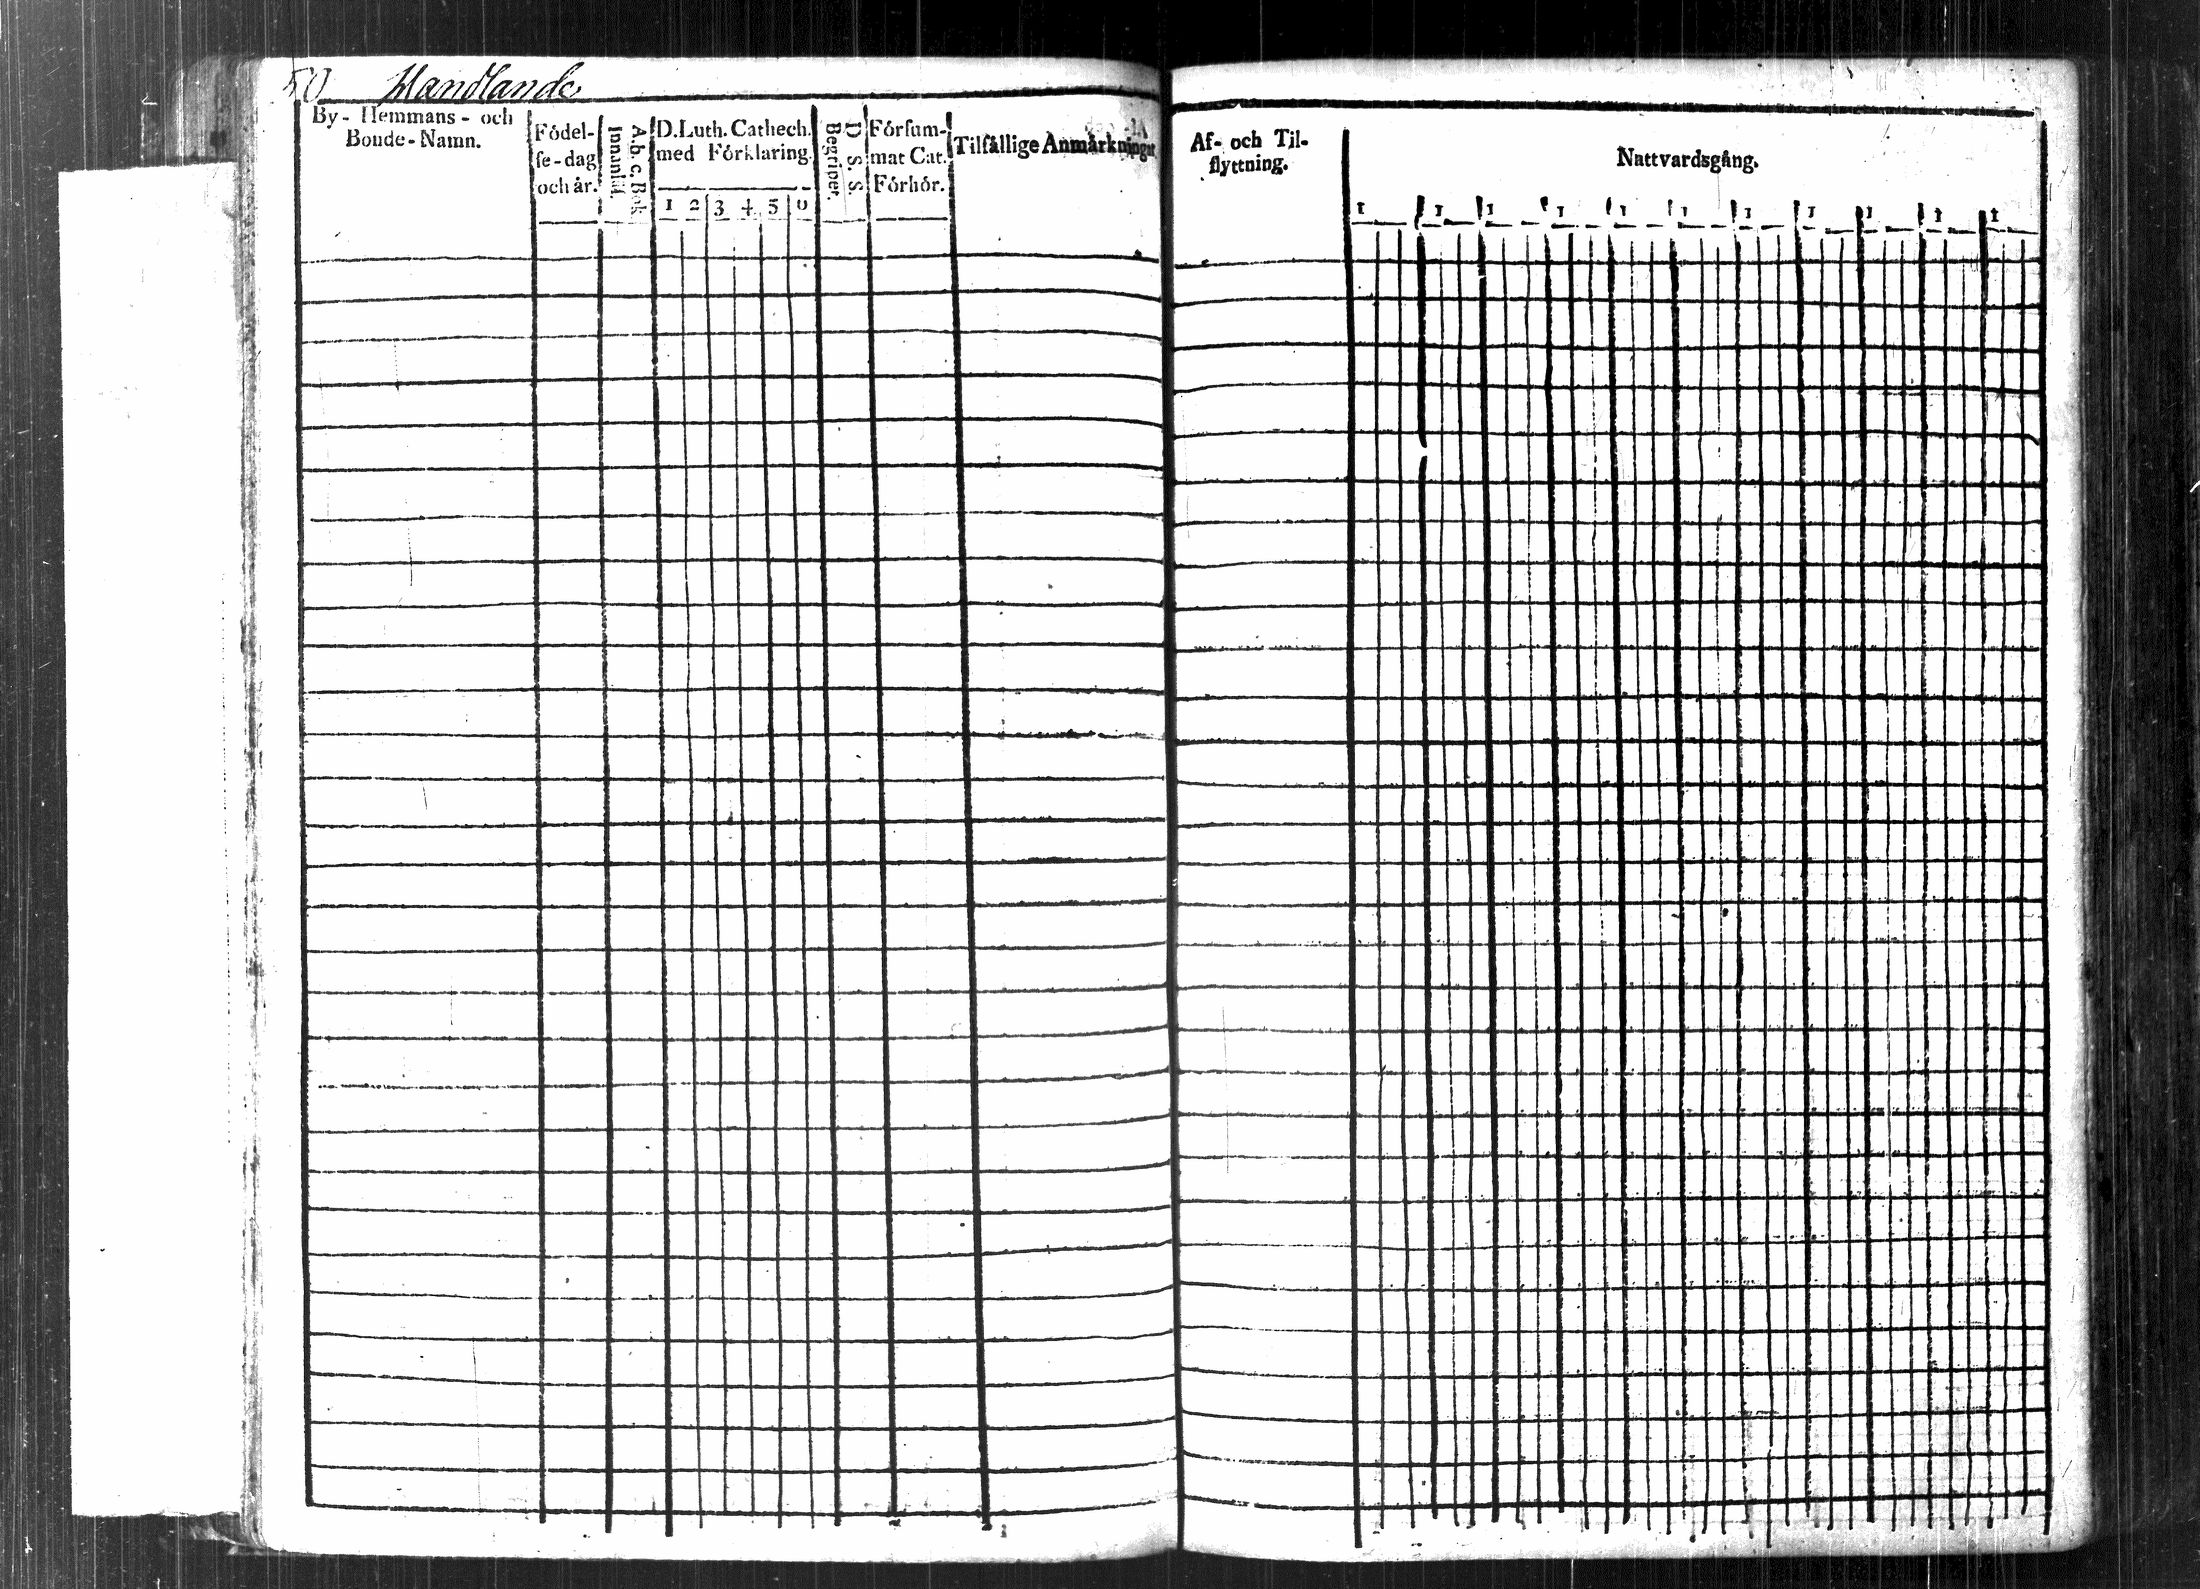 50 Handlande
By- Hemmans- och
Bonde-Namn.
Födel-
se-dag
och år.
A.b.c. Bok
Innantil.
D.Luth. Cathech.
med Förklaring.
1 2 3 4 5 0
D. S. S
Begriper.
Försum-
mat Cat.
Förhör.
Tilfällige Anmärkningar
Af- och Til-
flyttning.
Nattvardsgång.
1 1 1 1 1 1 1 1 1 1 1